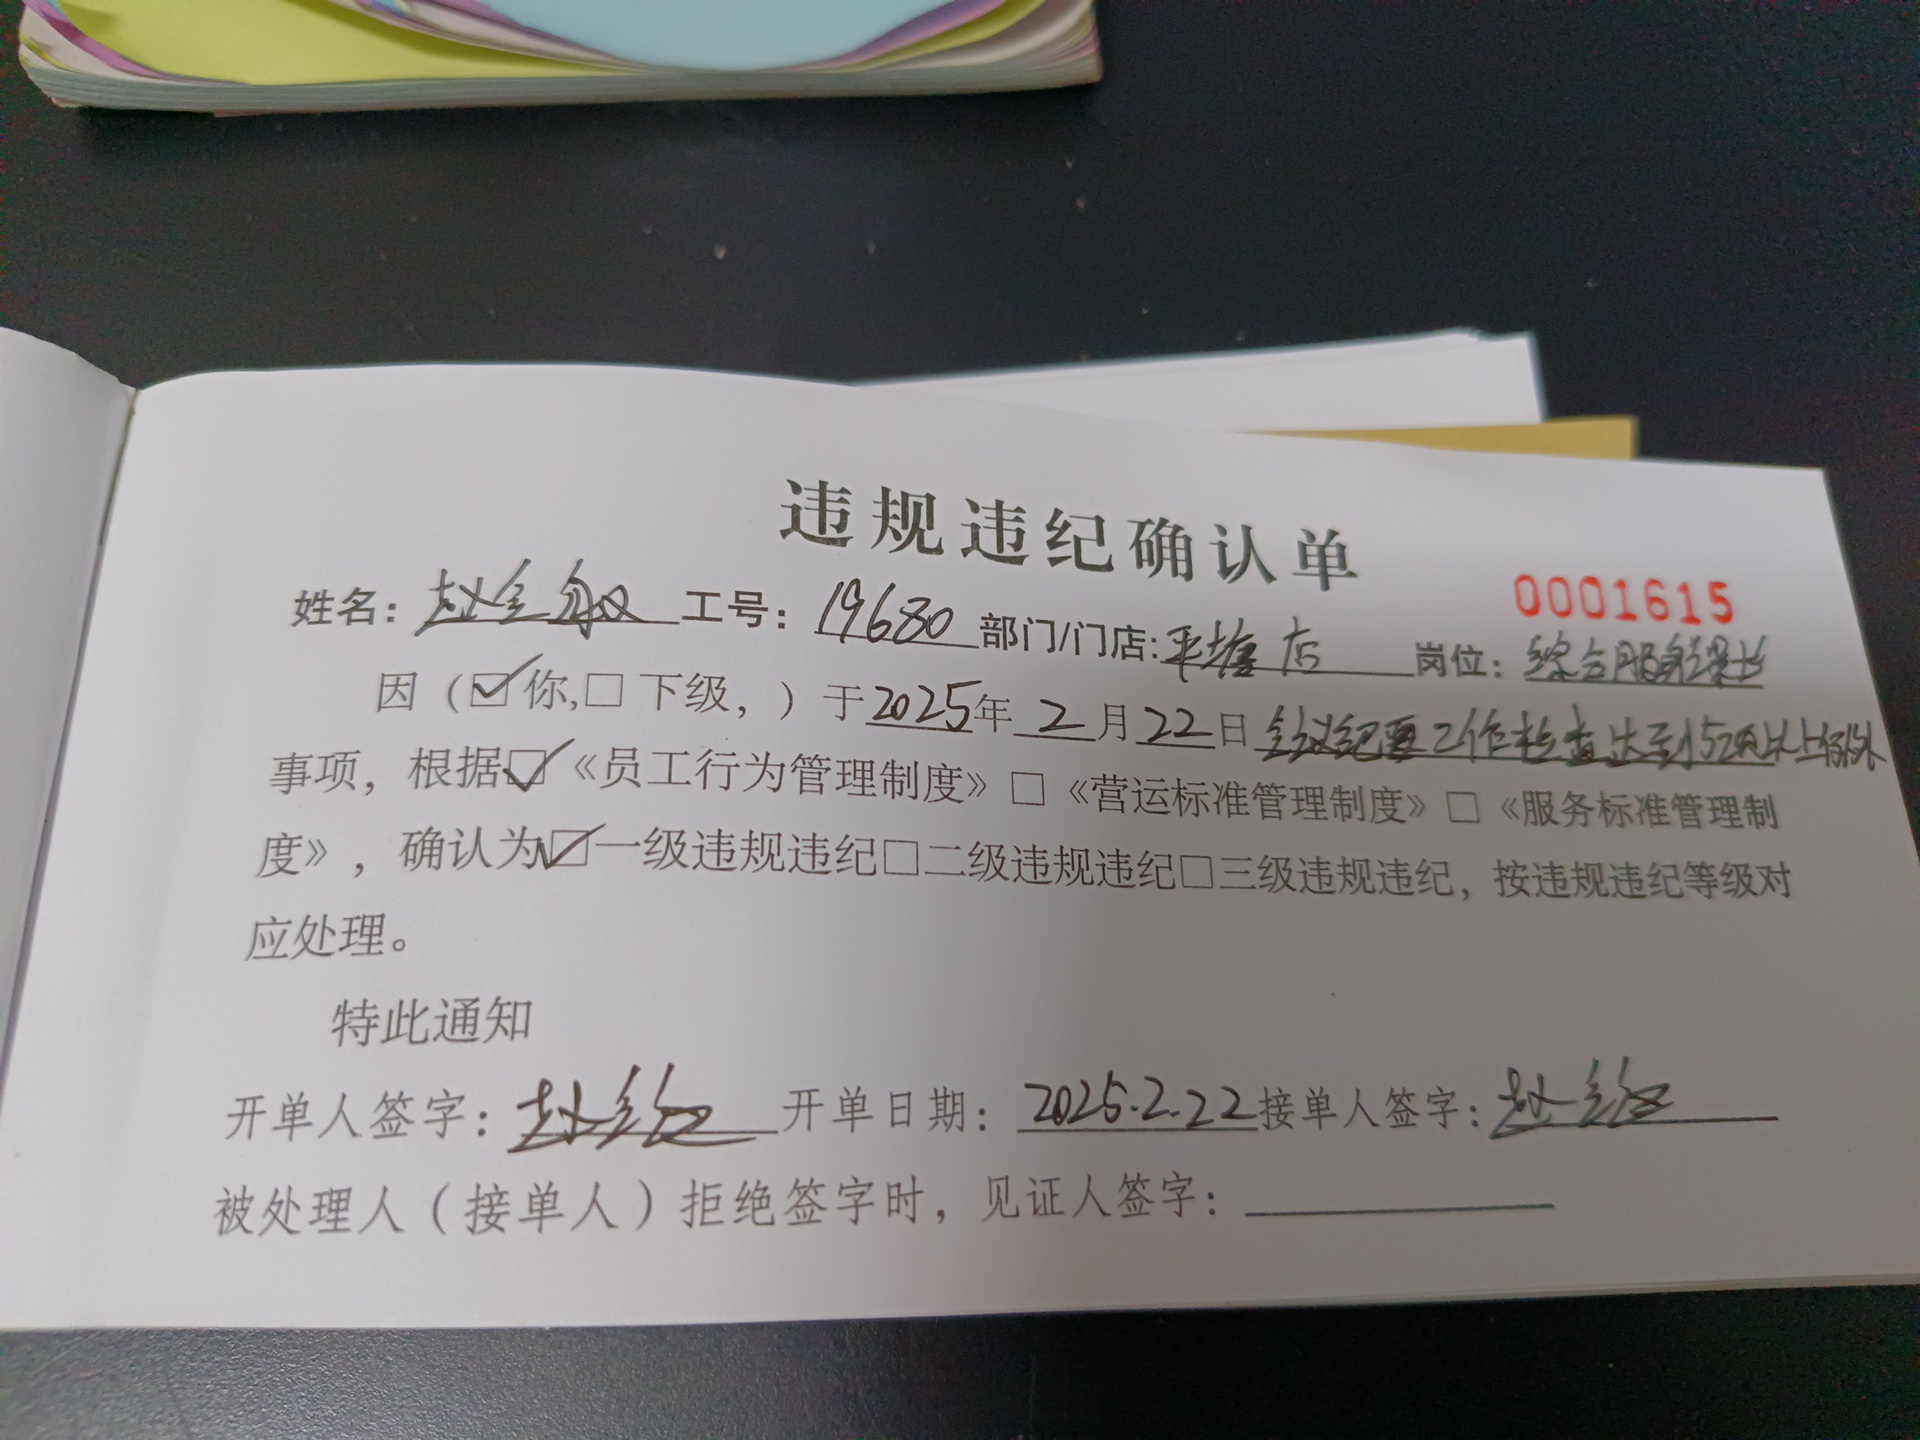 违规违纪确认单
0001615
姓名：赵金敏 工号：19680 部门/门店：平塘店 岗位：综合服务课长
因（☑你，□下级，）于2025年2月22日会议纪要工作检查达到5项以上
事项，根据☑《员工行为管理制度》□《营运标准管理制度》□《服务标准管理制
度》，确认为☑一级违规违纪□二级违规违纪□三级违规违纪，按违规违纪等级对
应处理。
特此通知
开单人签字：赵金敏 开单日期：2025.2.22 接单人签字：赵金敏
被处理人（接单人）拒绝签字时，见证人签字：